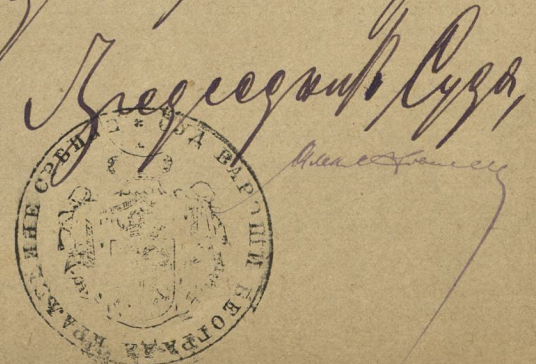 Предсједник Суда,
КРАЉЕВИНЕ СРБИЈЕ * СУД ВАРОШИ БЕОГРАДА